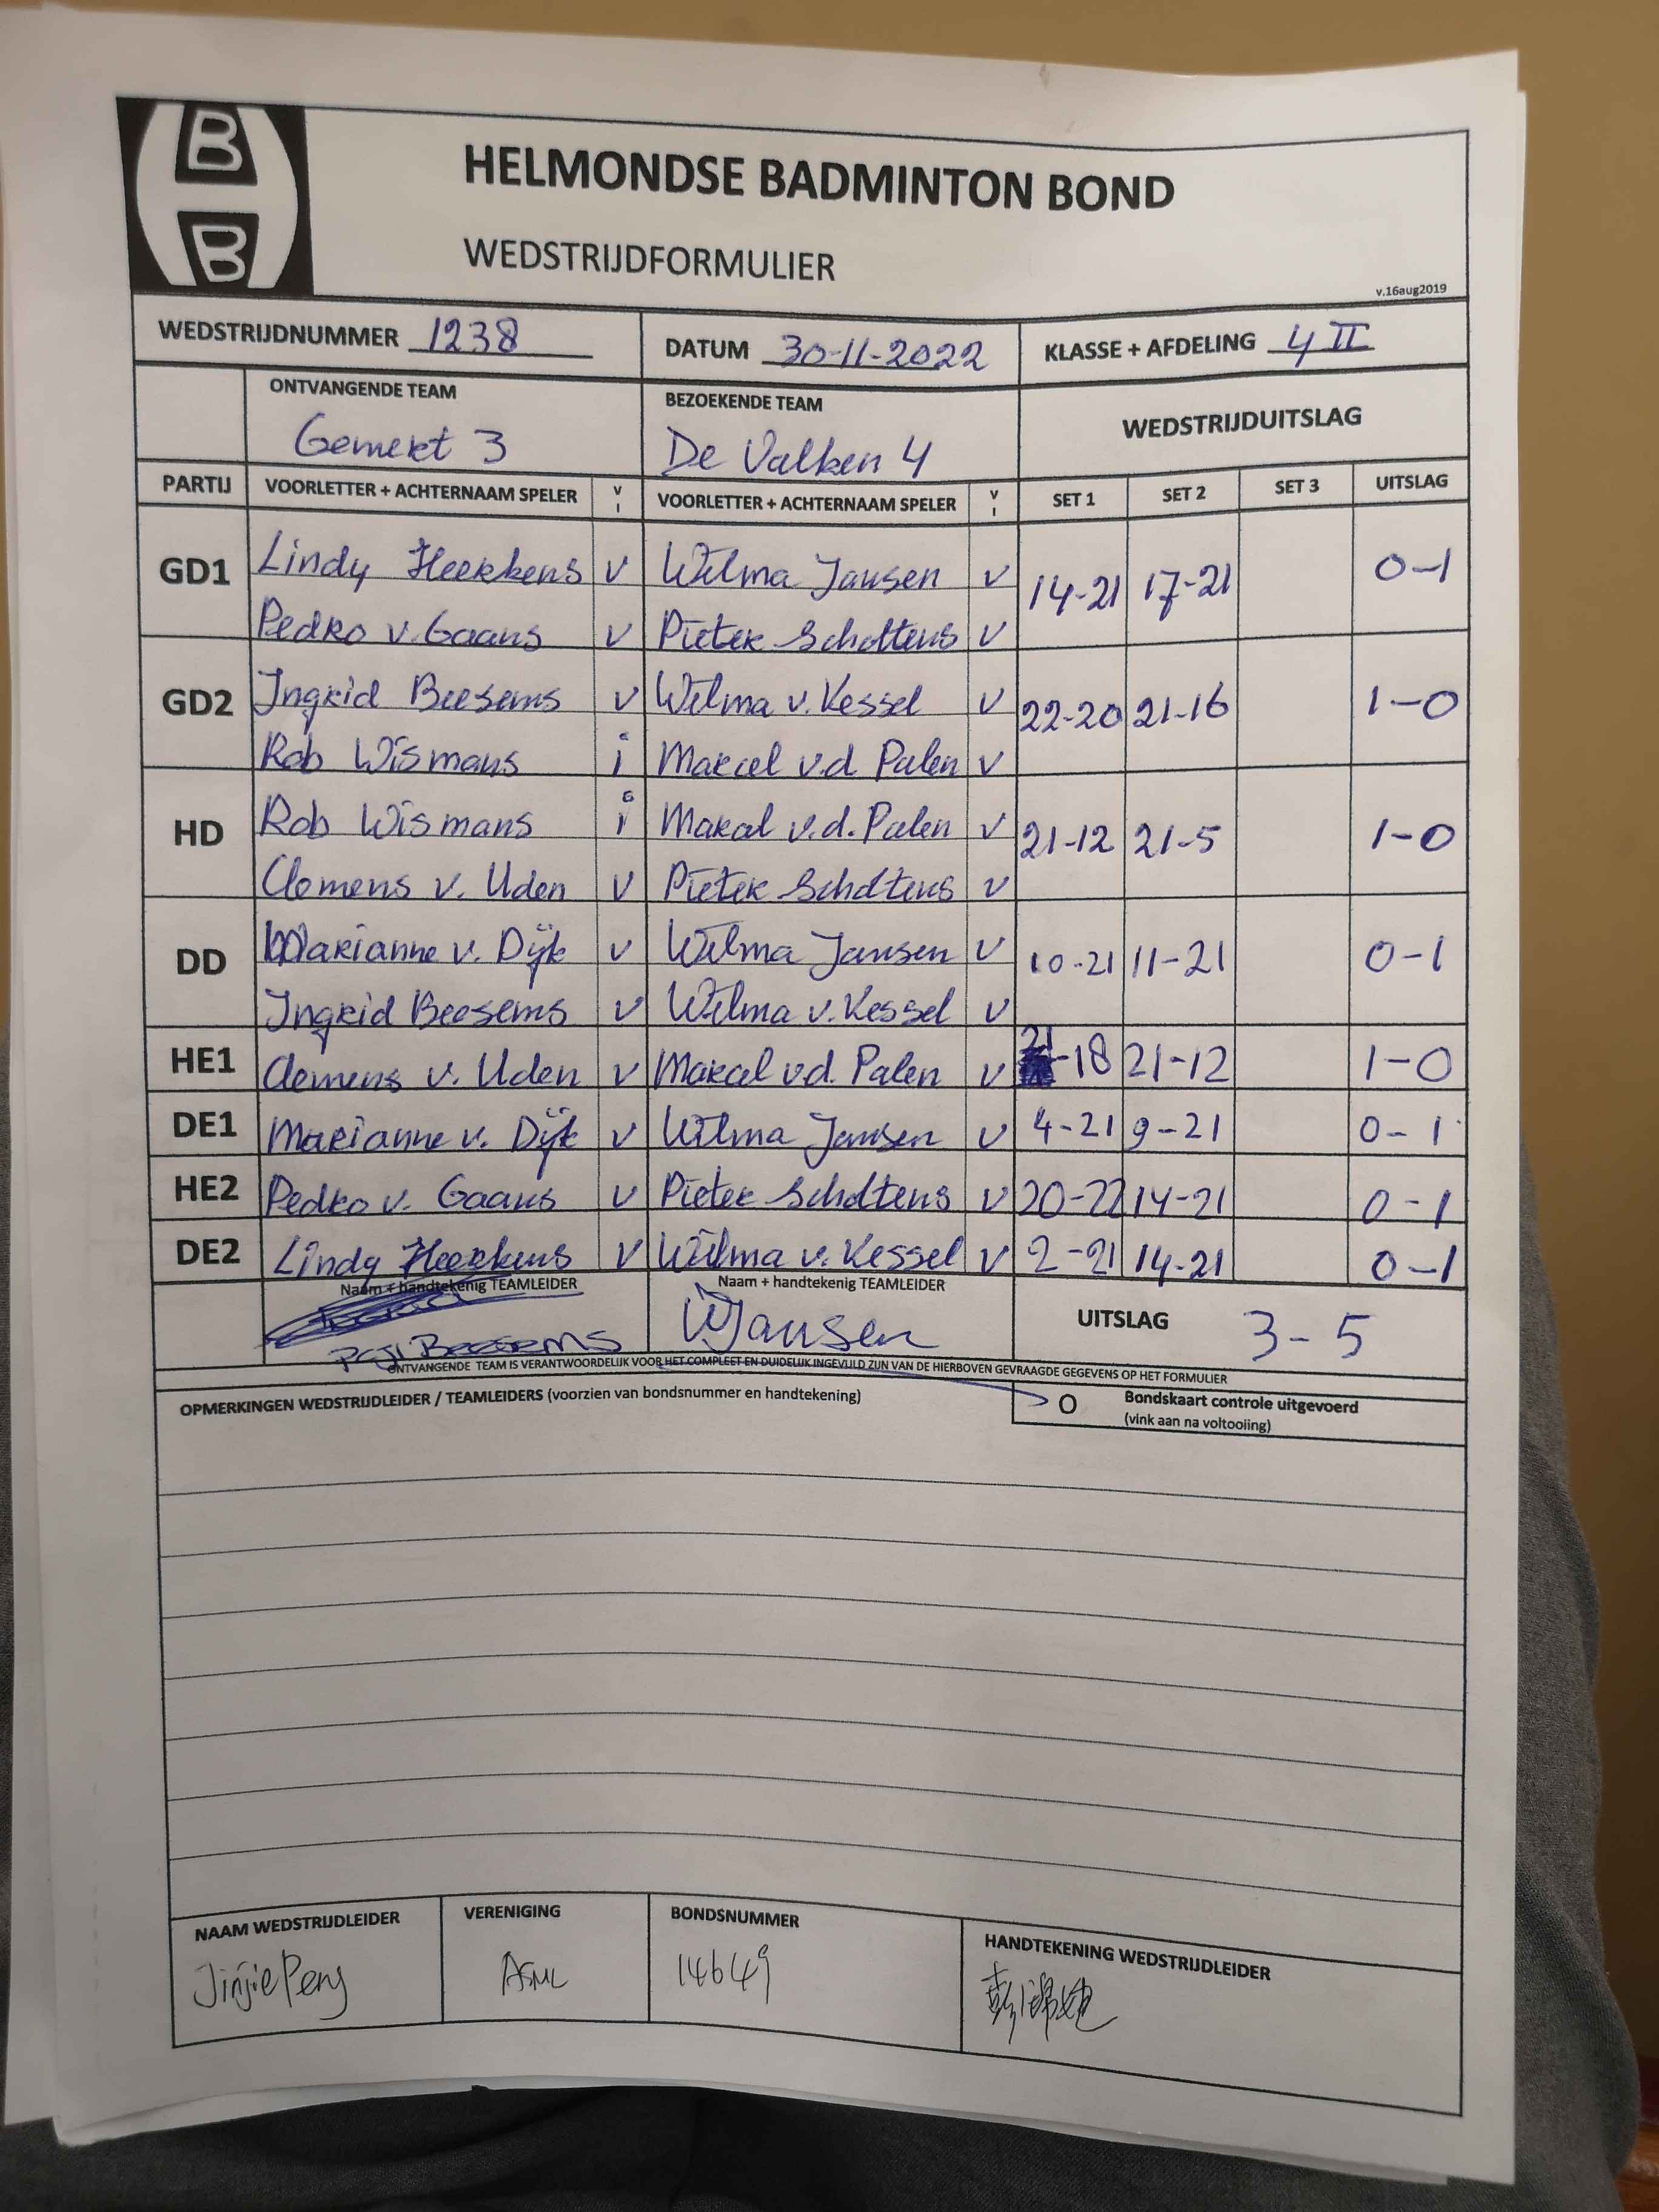 B
B
HELMONDSE BADMINTON BOND
WEDSTRIJDFORMULIER
v.16aug2019
WEDSTRIJDNUMMER 1238 DATUM 30-11-2022 KLASSE + AFDELING 4 II
ONTVANGENDE TEAM BEZOEKENDE TEAM WEDSTRIJDUITSLAG
Gemert 3 De Valken 4
PARTIJ VOORLETTER + ACHTERNAAM SPELER V I VOORLETTER + ACHTERNAAM SPELER V I SET 1 SET 2 SET 3 UITSLAG
GD1 Lindy Heerkens V Wilma Jansen V 14-21 17-21 0-1
Pedro v. Gaans V Pieter Scholtens V
GD2 Ingrid Beesems V Wilma v. Kessel V 22-20 21-16 1-0
Rob Wismans i Marcel v.d Palen V
HD Rob Wismans i Marcel v.d. Palen V 21-12 21-5 1-0
Clemens v. Uden V Pieter Scholtens V
DD Marianne v. Dijk V Wilma Jansen V 10-21 11-21 0-1
Ingrid Beesems V Wilma v. Kessel V
HE1 Clemens v. Uden V Marcel v.d. Palen V 21-18 21-12 1-0
DE1 Marianne v. Dijk V Wilma Jansen V 4-21 9-21 0-1
HE2 Pedro v. Gaans V Pieter Scholtens V 20-22 14-21 0-1
DE2 Lindy Heerkens V Wilma v. Kessel V 2-21 14-21 0-1
Naam + handtekenig TEAMLEIDER Naam + handtekenig TEAMLEIDER
Beesems WJansen UITSLAG 3-5
ONTVANGENDE TEAM IS VERANTWOORDELIJK VOOR HET COMPLEET EN DUIDELIJK INGEVULD ZIJN VAN DE HIERBOVEN GEVRAAGDE GEGEVENS OP HET FORMULIER
OPMERKINGEN WEDSTRIJDLEIDER / TEAMLEIDERS (voorzien van bondsnummer en handtekening) O Bondskaart controle uitgevoerd
(vink aan na voltooiing)
NAAM WEDSTRIJDLEIDER VERENIGING BONDSNUMMER HANDTEKENING WEDSTRIJDLEIDER
Jinjie Peng ASML 14649